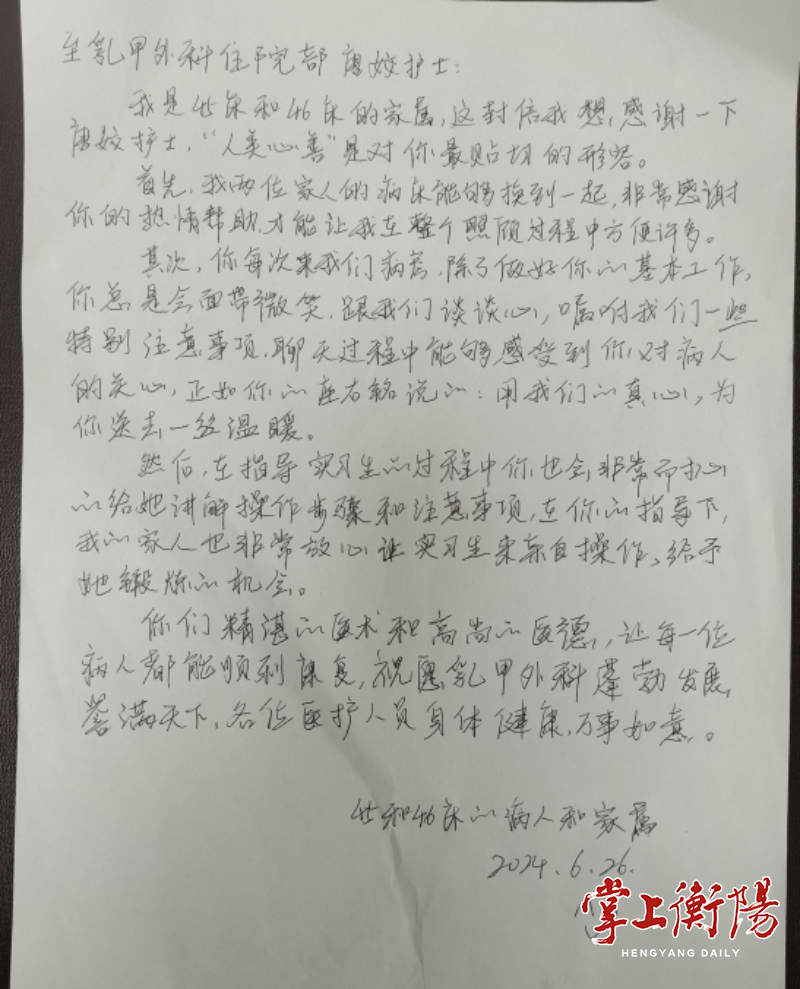 至乳甲外科住院部 唐姣护士：
我是45床和46床的家属，这封信我想，感谢一下
唐姣护士，“人美心善”是对你最贴切的形容。
首先，我两位家人的病床能够换到一起，非常感谢
你的热情帮助，才能让我在整个照顾过程中方便许多。
其次，你每次来我们病房，除了做好你的基本工作，
你总是会面带微笑，跟我们谈谈心，嘱咐我们一些
特别注意事项，聊天过程中能够感受到你对病人
的关心，正如你的座右铭说的：用我们的真心，为
你送去一丝温暖。
然后，在指导实习生的过程中你也会非常耐心
的给她讲解操作步骤和注意事项，在你的指导下，
我的家人也非常放心让实习生来亲自操作，给予
她锻炼的机会。
你们精湛的医术和高尚的医德，让每一位
病人都能顺利康复，祝愿乳甲外科蓬勃发展，
誉满天下，各位医护人员身体健康，万事如意。
45和46床的病人和家属
2024.6.26.
掌上衡陽
HENGYANG DAILY